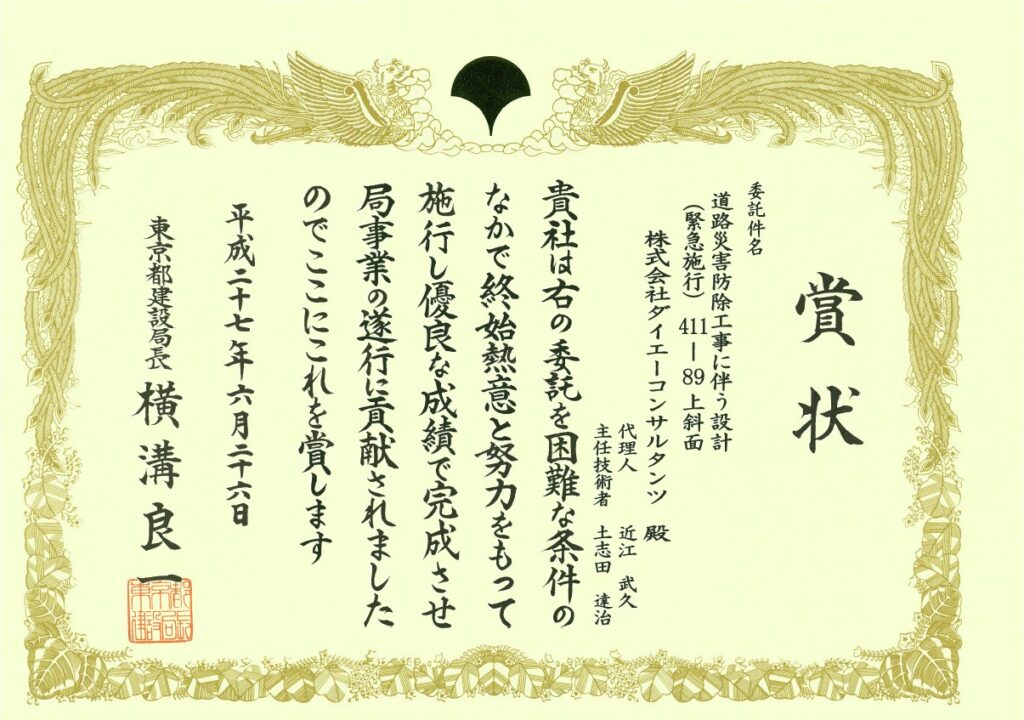 賞状
委託件名
道路災害防除工事に伴う設計
（緊急施行）411－89上斜面
株式会社ダイエーコンサルタンツ 殿
代理人 近江 武久
主任技術者 土志田 達治
貴社は右の委託を困難な条件の
なかで終始熱意と努力をもって
施行し優良な成績で完成させ
局事業の遂行に貢献されました
のでここにこれを賞します
平成二十七年六月二十六日
東京都建設局長 横溝良一
東京都建設局長